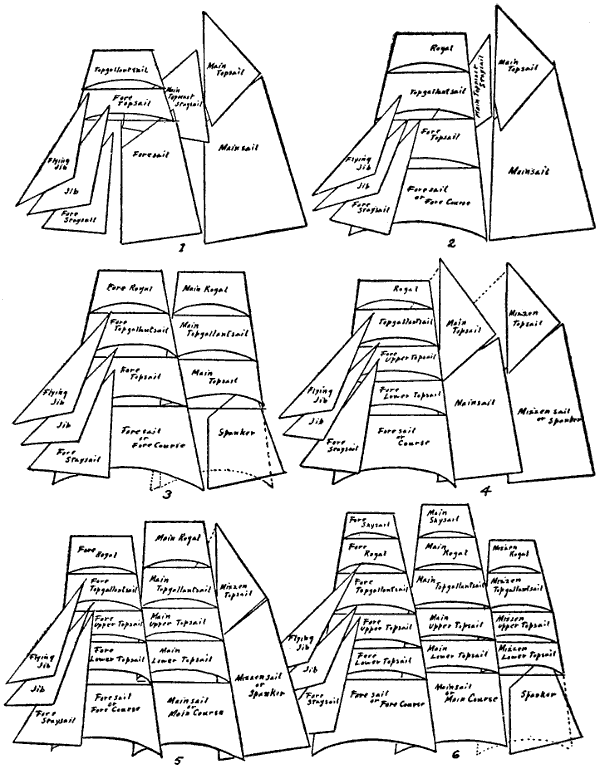 Topgallantsail
Fore
Topsail
Main
Topmast
Staysail
Main
Topsail
Flying
Jib
Jib
Fore
Staysail
Foresail
Mainsail
1
Royal
Topgallantsail
Fore
Topsail
Main Topmast
Staysail
Main
Topsail
Flying
Jib
Jib
Fore
Staysail
Foresail
or Fore Course
Mainsail
2
Fore Royal
Main Royal
Fore
Topgallantsail
Main
Topgallantsail
Fore
Topsail
Main
Topsail
Flying
Jib
Jib
Fore
Staysail
Foresail
or
Fore Course
Spanker
3
Royal
Topgallantsail
Fore
Upper Topsail
Fore
Lower Topsail
Main
Topsail
Mizzen
Topsail
Flying
Jib
Jib
Fore
Staysail
Foresail
or
Course
Mainsail
Mizzen sail
or Spanker
4
Fore
Royal
Main Royal
Fore
Topgallantsail
Main
Topgallantsail
Mizzen
Topsail
Fore
Upper Topsail
Main
Upper Topsail
Fore
Lower Topsail
Main
Lower Topsail
Flying
Jib
Jib
Fore
Staysail
Foresail
or
Fore Course
Mainsail
or
Main Course
Mizzensail
or
Spanker
5
Fore
Skysail
Main
Skysail
Fore
Royal
Main
Royal
Mizzen
Royal
Fore
Topgallantsail
Main
Topgallantsail
Mizzen
Topgallantsail
Fore
Upper Topsail
Main
Upper Topsail
Mizzen
Upper Topsail
Fore
Lower Topsail
Main
Lower Topsail
Mizzen
Lower Topsail
Flying
Jib
Jib
Fore
Staysail
Fore sail
or
Fore Course
Mainsail
or
Main Course
Spanker
6